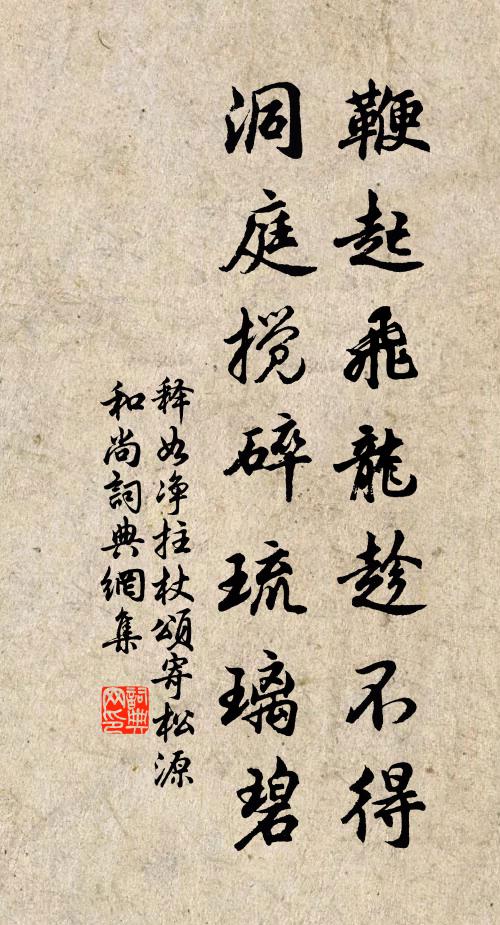 鞭起飛龍趁不得
洞庭搅碎琉璃碧
释如净拄杖頌寄松源
和尚詞典網集
詞典
网印